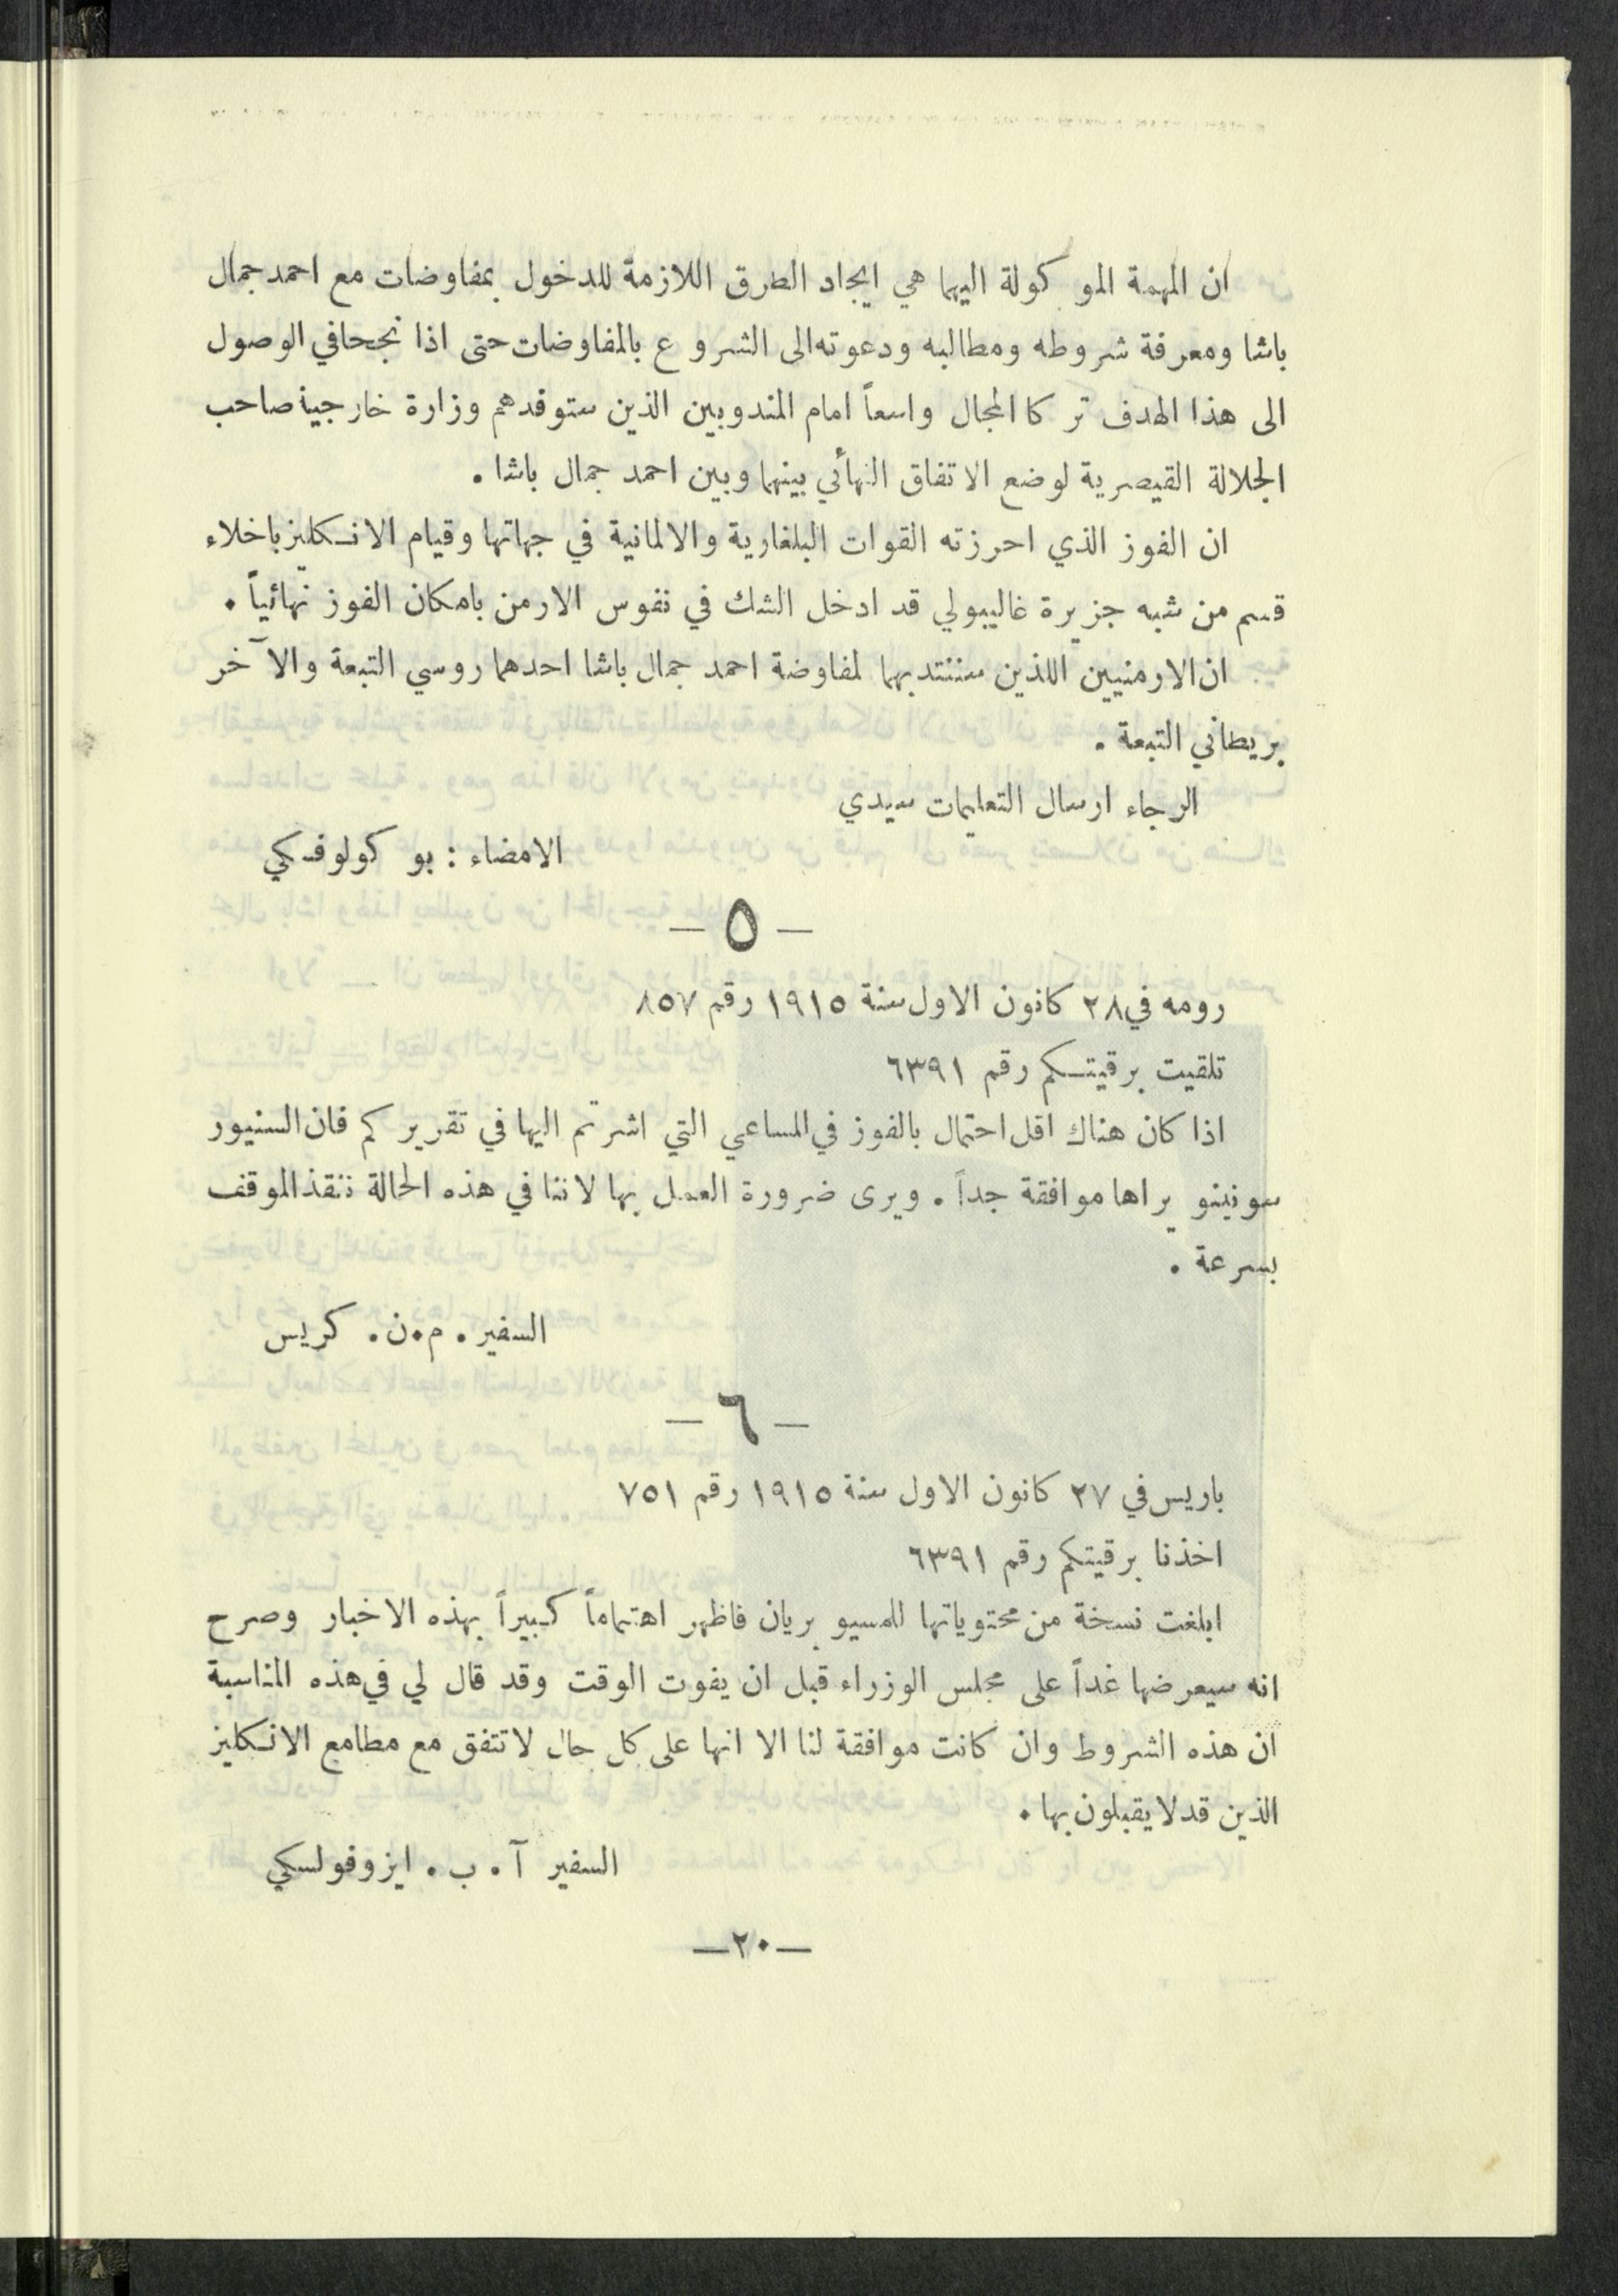 ان المهمة الموكولة اليهما هي ايجاد الطرق اللازمة للدخول بمفاوضات مع احمد جمال
باشا ومعرفة شروطه ومطالبه ودعوته الى الشروع بالمفاوضات حتى اذا نجحا في الوصول
الى هذا الهدف تركا المجال واسعاً امام المندوبين الذين ستوفدهم وزارة خارجية صاحب
الجلالة القيصرية لوضع الاتفاق النهائي بينهما وبين احمد جمال باشا .
ان الفوز الذي احرزته القوات البلغارية والالمانية في جهاتها وقيام الانكليز باخلاء
قسم من شبه جزيرة غاليبولي قد ادخل الشك في نفوس الارمن بامكان الفوز نهائياً .
ان الارمنيين اللذين سننتدبهما لمفاوضة احمد جمال باشا احدهما روسي التبعة والآخر
بريطاني التبعة .
الرجاء ارسال التعليمات سيدي
الامضاء : بوكولوفسكي
— ٥ —
رومه في ٢٨ كانون الاول سنة ١٩١٥ رقم ٨٥٧
تلقيت برقيتكم رقم ٦٣٩١
اذا كان هناك اقل احتمال بالفوز في المساعي التي اشرتم اليها في تقريركم فان السنيور
سونينو يراها موافقة جداً . ويرى ضرورة العمل بها لاننا في هذه الحالة ننقذ الموقف
بسرعة .
السفير . م . ن . كريس
— ٦ —
باريس في ٢٧ كانون الاول سنة ١٩١٥ رقم ٧٥١
اخذنا برقيتكم رقم ٦٣٩١
ابلغت نسخة من محتوياتها للمسيو بريان فاظهر اهتماماً كبيراً بهذه الاخبار وصرح
انه سيعرضها غداً على مجلس الوزراء قبل ان يفوت الوقت وقد قال لي في هذه المناسبة
ان هذه الشروط وان كانت موافقة لنا الا انها على كل حال لا تتفق مع مطامع الانكليز
الذين قد لا يقبلون بها .
السفير آ . ب . ايزوفولسكي
—٢٠—